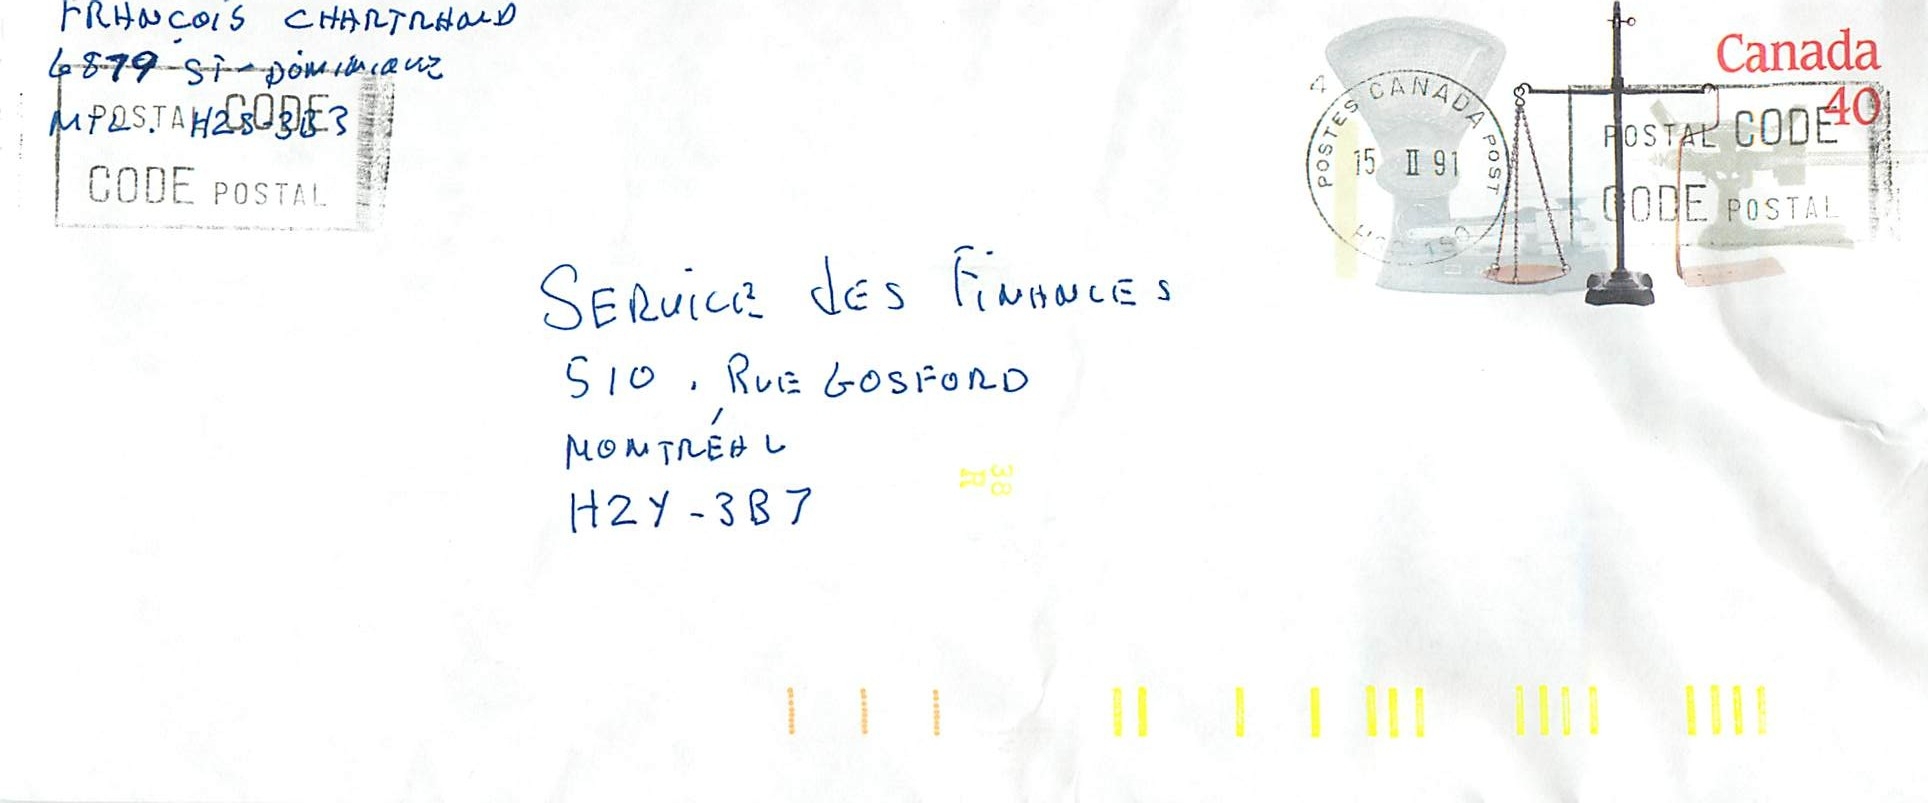 FRANÇOIS CHARTRAND
6879 ST-DOMINIQUE
MTL. H2S-3B3
POSTAL CODE
CODE POSTAL
Canada
40
POSTES CANADA POST
15 II 91
POSTAL CODE
CODE POSTAL
SERVICE dES FINANCES
510, RUE GOSFORD
MONTRÉAL
H2Y-3B7
38
R